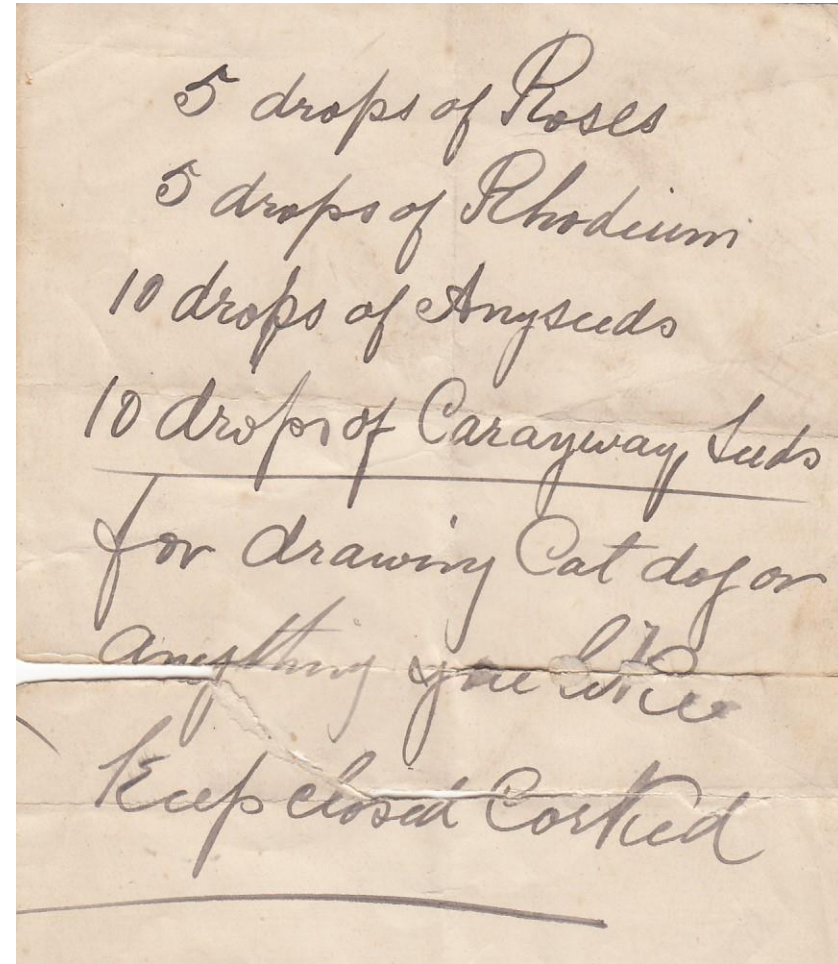 5 drops of Roses
5 drops of Rhodium
10 drops of Anyseeds
10 drops of Carayway Seeds
for drawing Cat dog or
anything you like
Keep closed Corked